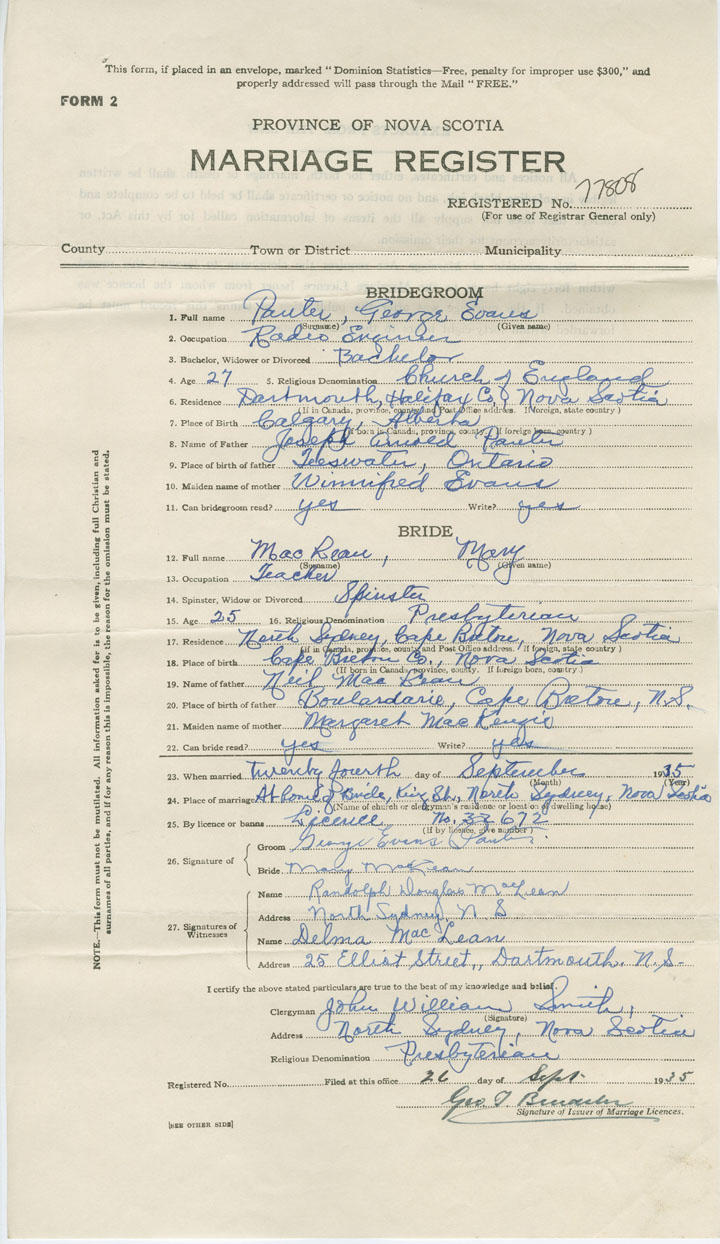 This form, if placed in an envelope, marked "Dominion Statistics—Free, penalty for improper use $300," and
properly addressed will pass through the Mail "FREE."
FORM 2
PROVINCE OF NOVA SCOTIA
MARRIAGE REGISTER
REGISTERED No. 77808
(For use of Registrar General only)
County Town or District Municipality
BRIDEGROOM
1. Full name Pauter, George Evans
(Surname) (Given name)
2. Occupation Radio Engineer
3. Bachelor, Widower or Divorced Bachelor
4. Age 27 5. Religious Denomination Church of England
6. Residence Dartmouth, Halifax Co., Nova Scotia
(If in Canada, province, county and Post Office address. If foreign, state country)
7. Place of Birth Calgary, Alberta
(If born in Canada, province, county. If foreign born, country)
8. Name of Father Joseph Arnold Pauter
9. Place of birth of father Teeswater, Ontario
10. Maiden name of mother Winnifred Evans
11. Can bridegroom read? yes Write? yes
BRIDE
12. Full name MacKean, Mary
(Surname) (Given name)
13. Occupation Teacher
14. Spinster, Widow or Divorced Spinster
15. Age 25 16. Religious Denomination Presbyterian
17. Residence North Sydney, Cape Breton, Nova Scotia
(if in Canada, province, county and Post Office address. If foreign, state country)
18. Place of birth Cape Breton Co., Nova Scotia
(If born in Canada, province, county. If foreign born, country.)
19. Name of father Neil MacKean
20. Place of birth of father Boulardarie, Cape Breton, N.S.
21. Maiden name of mother Margaret MacKenzie
22. Can bride read? yes Write? yes
23. When married twenty fourth day of September 1935
(Month) (Year)
24. Place of marriage At home of Bride, King St., North Sydney, Nova Scotia
(Name of church or clergyman's residence or location of dwelling house)
25. By licence or banns Licence No. 33672
(If by licence, give number)
Groom George Evans Pauter
26. Signature of
Bride Mary MacKean
Name Randolph Douglas MacLean
Address North Sydney, N S
27. Signatures of Witnesses
Name Delma MacLean
Address 25 Elliot Street, Dartmouth. N.S.
I certify the above stated particulars are true to the best of my knowledge and belief.
Clergyman John William Smith,
(Signature)
Address North Sydney, Nova Scotia
Religious Denomination Presbyterian
Registered No. Filed at this office 26 day of Sept. 1935
Geo. T.
Signature of Issuer of Marriage Licences.
[SEE OTHER SIDE]
NOTE.—This form must not be mutilated. All information asked for is to be given, including full Christian and
surnames of all parties, and if for any reason this is impossible, the reason for the omission must be stated.